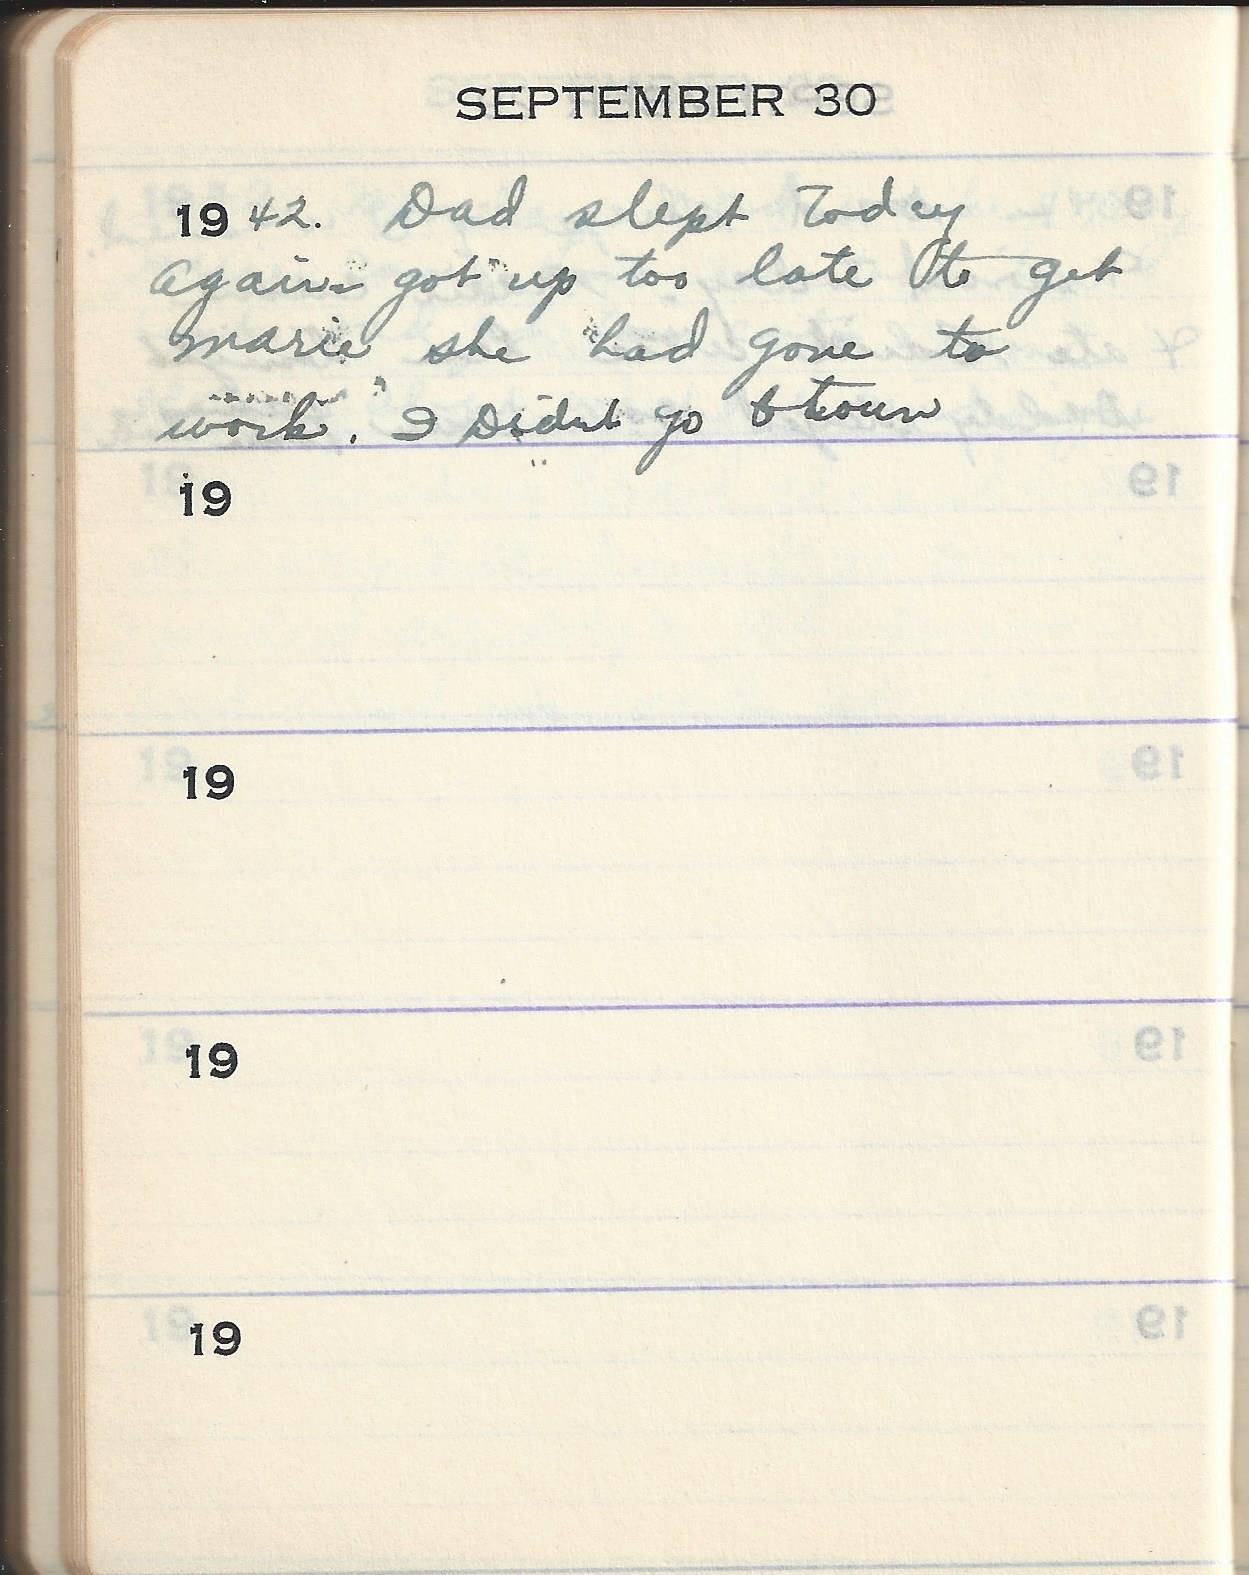 SEPTEMBER 30
1942. Dad slept Today
again got up too late to get
marie she had gone to
work. I Didnt go town
19
19
19
19